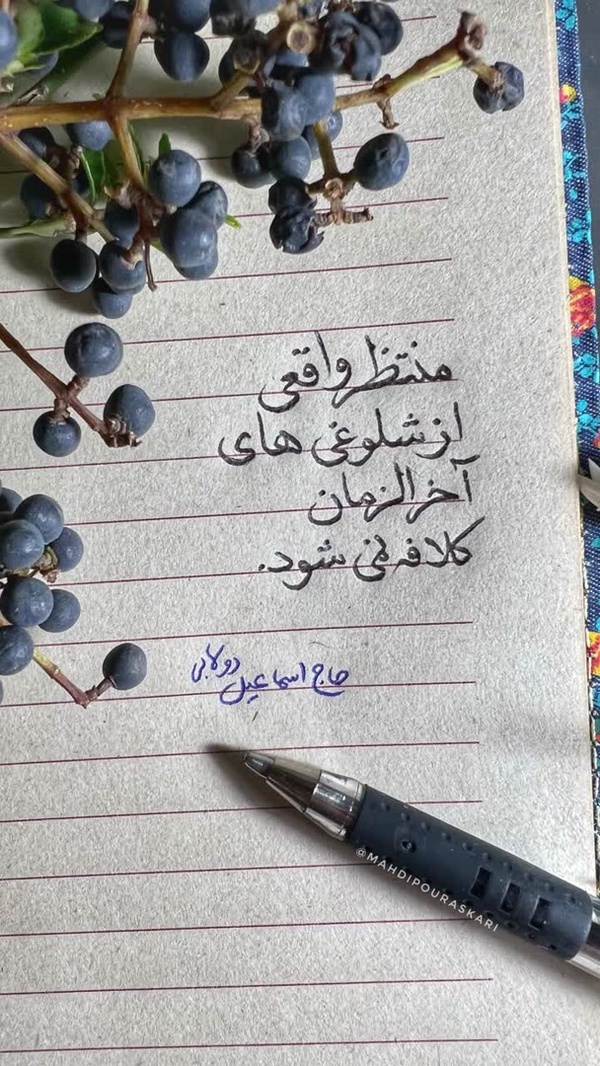 منتظر واقعی
از شلوغی های
آخرالزمان
کلافه نمی شود.
حاج اسماعیل دولابی
@MAHDIPOURASKARI